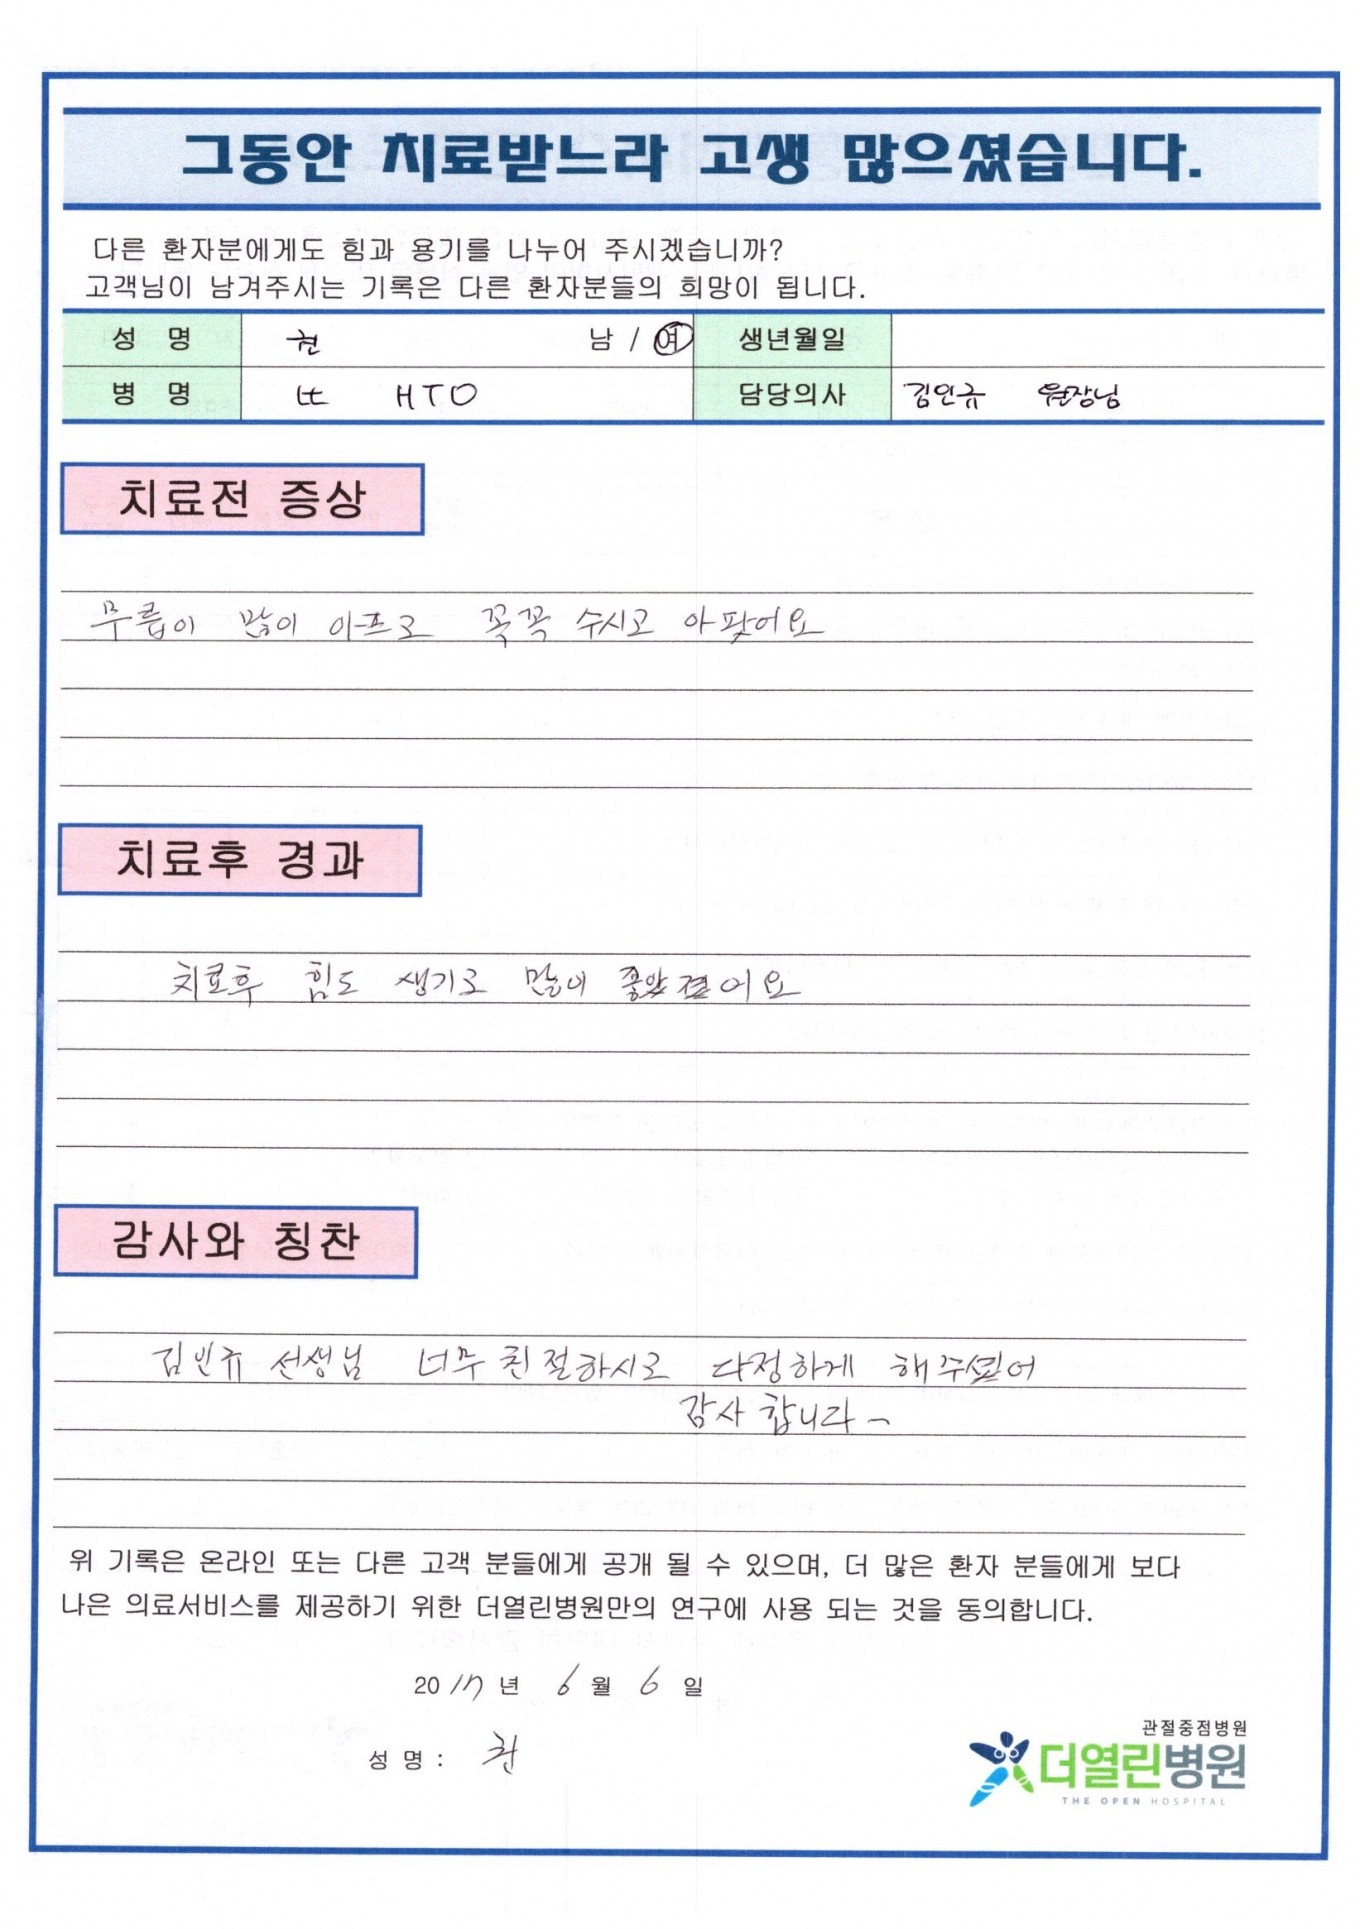 그동안 치료받느라 고생 많으셨습니다.
다른 환자분에게도 힘과 용기를 나누어 주시겠습니까?
고객님이 남겨주시는 기록은 다른 환자분들의 희망이 됩니다.
성 명 권 남 / 여 생년월일
병 명 HTO 담당의사 김인규 원장님
치료전 증상
무릅이 많이 아프고 꼭꼭 수시고 아팟어요
치료후 경과
치료후 힘도 생기고 많이 좋았졌어요
감사와 칭찬
김인규 선생님 너무 친절하시고 다정하게 해주셨어
감사 합니다~
위 기록은 온라인 또는 다른 고객 분들에게 공개 될 수 있으며, 더 많은 환자 분들에게 보다
나은 의료서비스를 제공하기 위한 더열린병원만의 연구에 사용 되는 것을 동의합니다.
2017년 6월 6일
성 명 : 권
관절중점병원
더열린병원
THE OPEN HOSPITAL